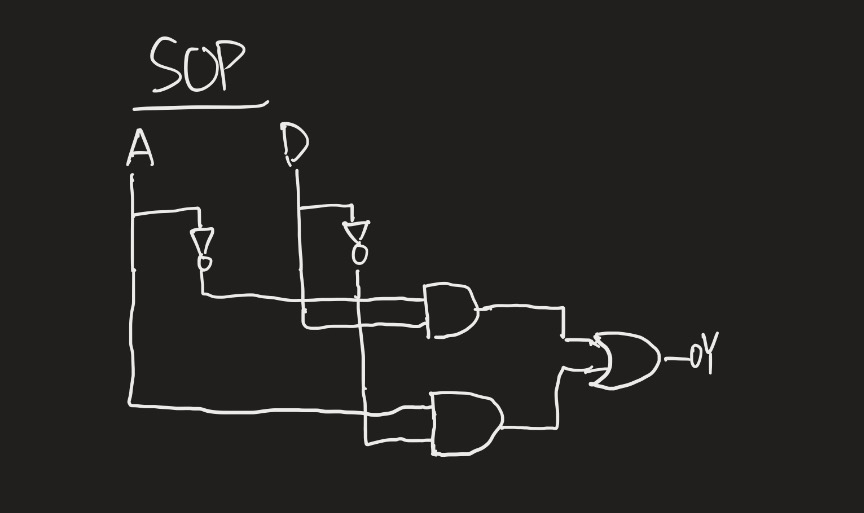 SOP
A D
Y